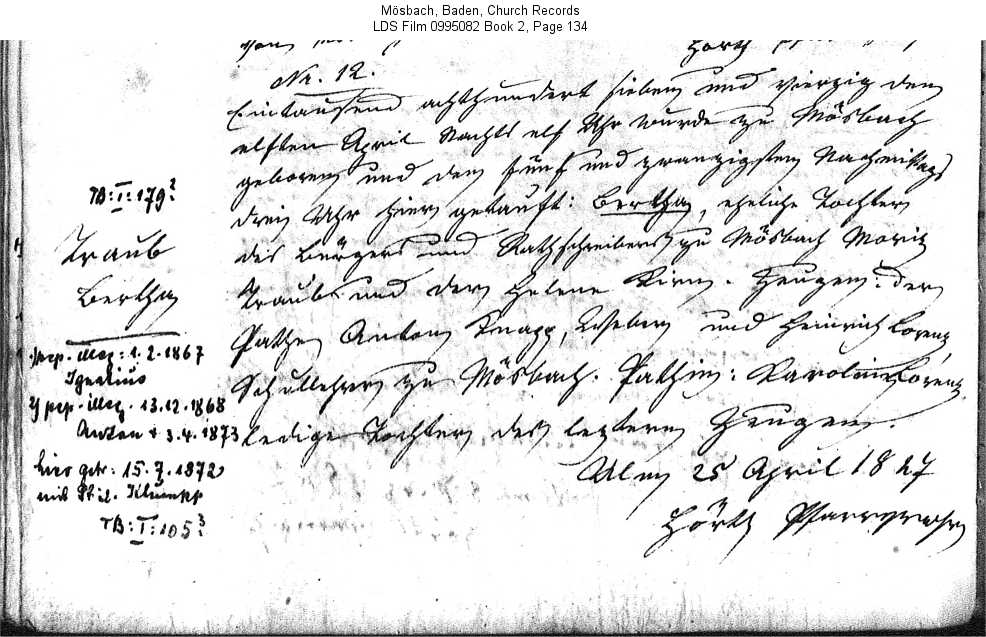 Mösbach, Baden, Church Records
LDS Film 0995082 Book 2, Page 134
No. 12.
Eintausend achthundert sieben und vierzig den
elften April Nachts elf Uhr wurde zu Mösbach
geboren und den fünf und zwanzigsten Nachmittags
drei Uhr hier getauft: Bertha, eheliche Tochter
des Bürgers und Rathschreibers zu Mösbach Moritz
Traub und der Helene Kirn. Zeugen: der
Pathe Anton Knapp, Weber und Heinrich Lorenz,
Schullehrer zu Mösbach. Pathin: Karolina Lorenz
ledige Tochter des letztern Zeugen.
Ulm 25 April 1847
Hörth Pfarrverw.
TB: I: 179?
Traub
Bertha
illeg: 1.2.1867
Ignatius
illeg. 13.12.1868
Anton + 3.4.1873
hier getr: 15.7.1872
mit Klumpp
TB: I: 105